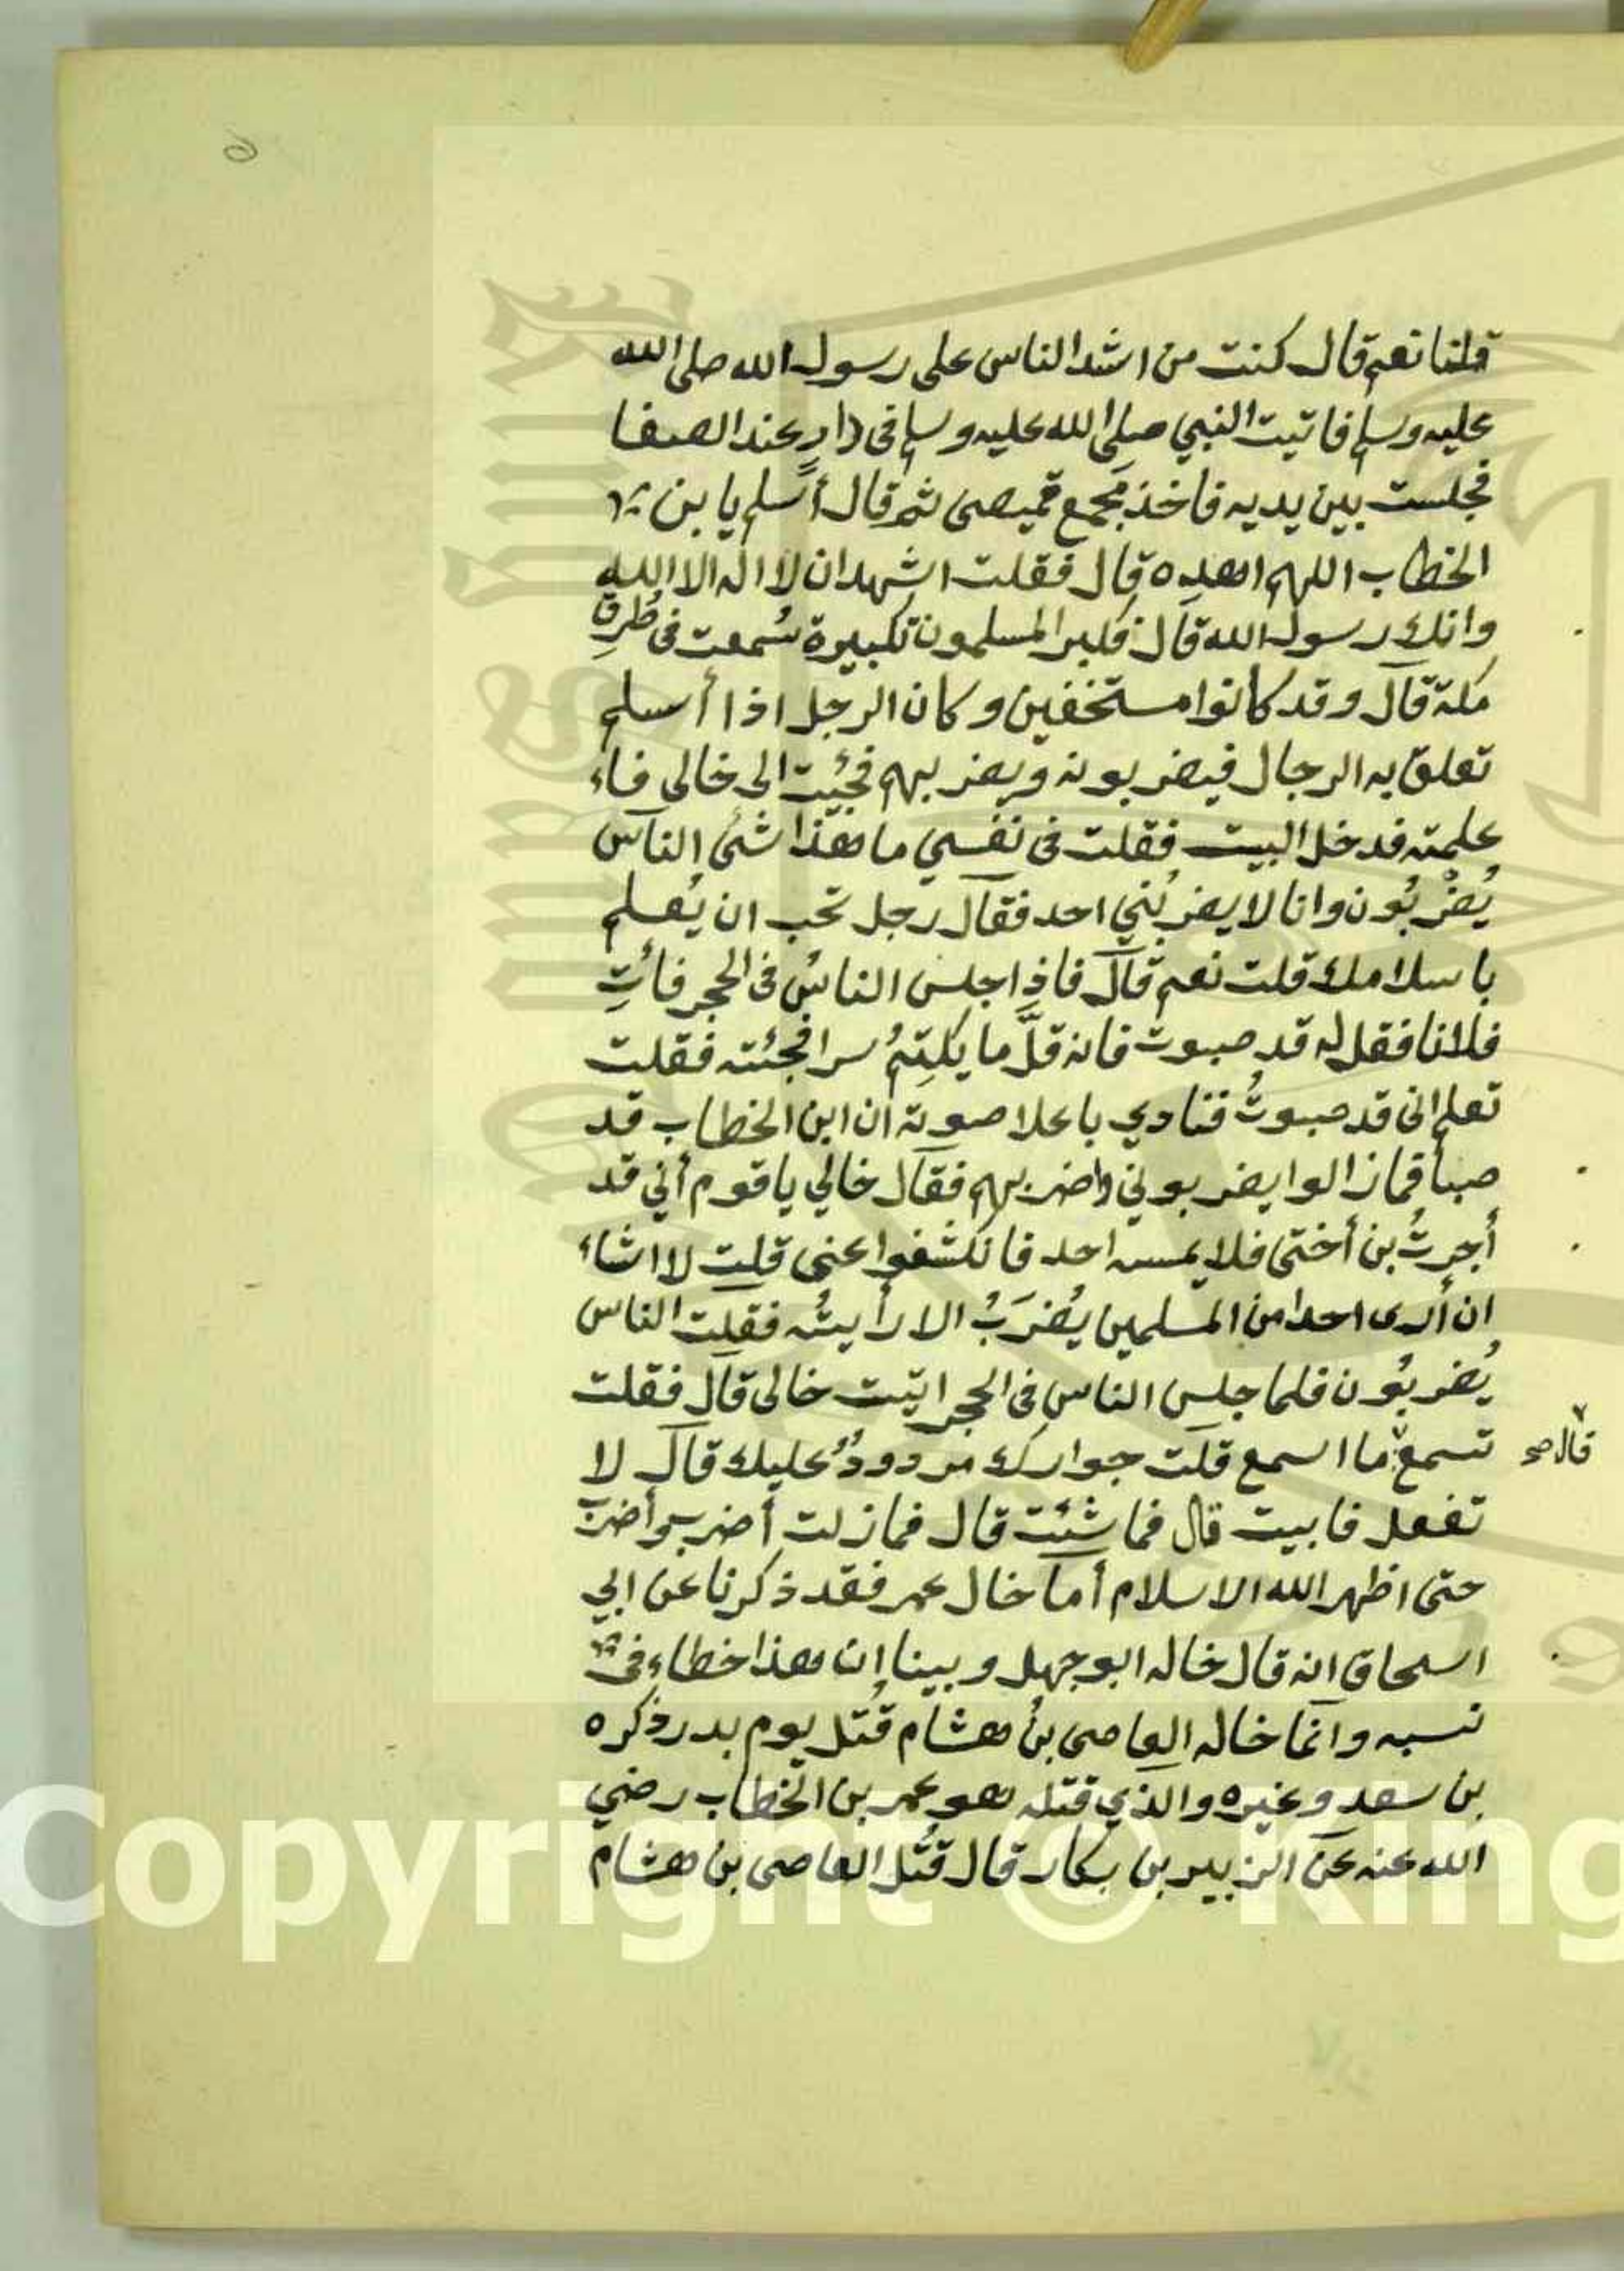 قلنا نعم قال كنت من اشد الناس على رسول الله صلى الله
عليه وسلم فاتيت النبي صلى الله عليه وسلم فى دارٍ عند الصفا
فجلست بين يديه فاخذ بمَجمع قميصى ثم قال أسلم يا بن
الخطاب اللهم اهده قال فقلت اشهد ان لا اله الا الله
وانك رسول الله قال فكبر المسلمون تكبيرة سُمعت فى طُرِق
مكة قال وقد كانوا مستخفين وكان الرجل اذا أسلم
تعلق به الرجال فيضربونه ويضربهم فجئيت الى خالى فاء
علمته فدخل البيت فقلت فى نفسي ما هذا شئ الناس
يُضْربُون وانا لا يضربُني احد فقال رجل تحب ان يُعلم
باسلامك قلت نعم قال فاذا جلس الناسُ فى الحجر فائتِ
فلانا فقل له قد صبوت فانه قلَّ ما يكتِمُ سرا فجئته فقلت
تعلم انى قد صبوتُ فنادي باعلا صوته ان ابن الخطاب قد
صبأ فما زالوا يضربوني واضربهم فقال خالي يا قوم أني قد
أجرتُ بن أختى فلا يمسه احد فانكشفوا عنى قلت لا اشاء
ان أرى احدا من المسلمين يُضرَبُ الا رأيتُه فقلت الناس
يُضربُون فلما جلس الناس فى الحجر اتيت خالى قال فقلت
تسمع ما اسمع قلت جوارك مردودُ عليك قال لا
قال صح
تفعل فابيت قال فما شئت قال فما زلت أضرب وأضرب
حتى اظهر الله الاسلام أما خال عمر فقد ذكرنا عن ابي
اسحاق انه قال خاله ابو جهل وبينا إن هذا خطاء فى
نسبه وانما خاله العاصى بنُ هشام قُتل يوم بدر ذكره
بن سعد وغيره والذي قتله هو عمر بن الخطاب رضي
الله عنه عن الزبير بن بكار قال قُتل العاصى بن هشام
Copyright © King